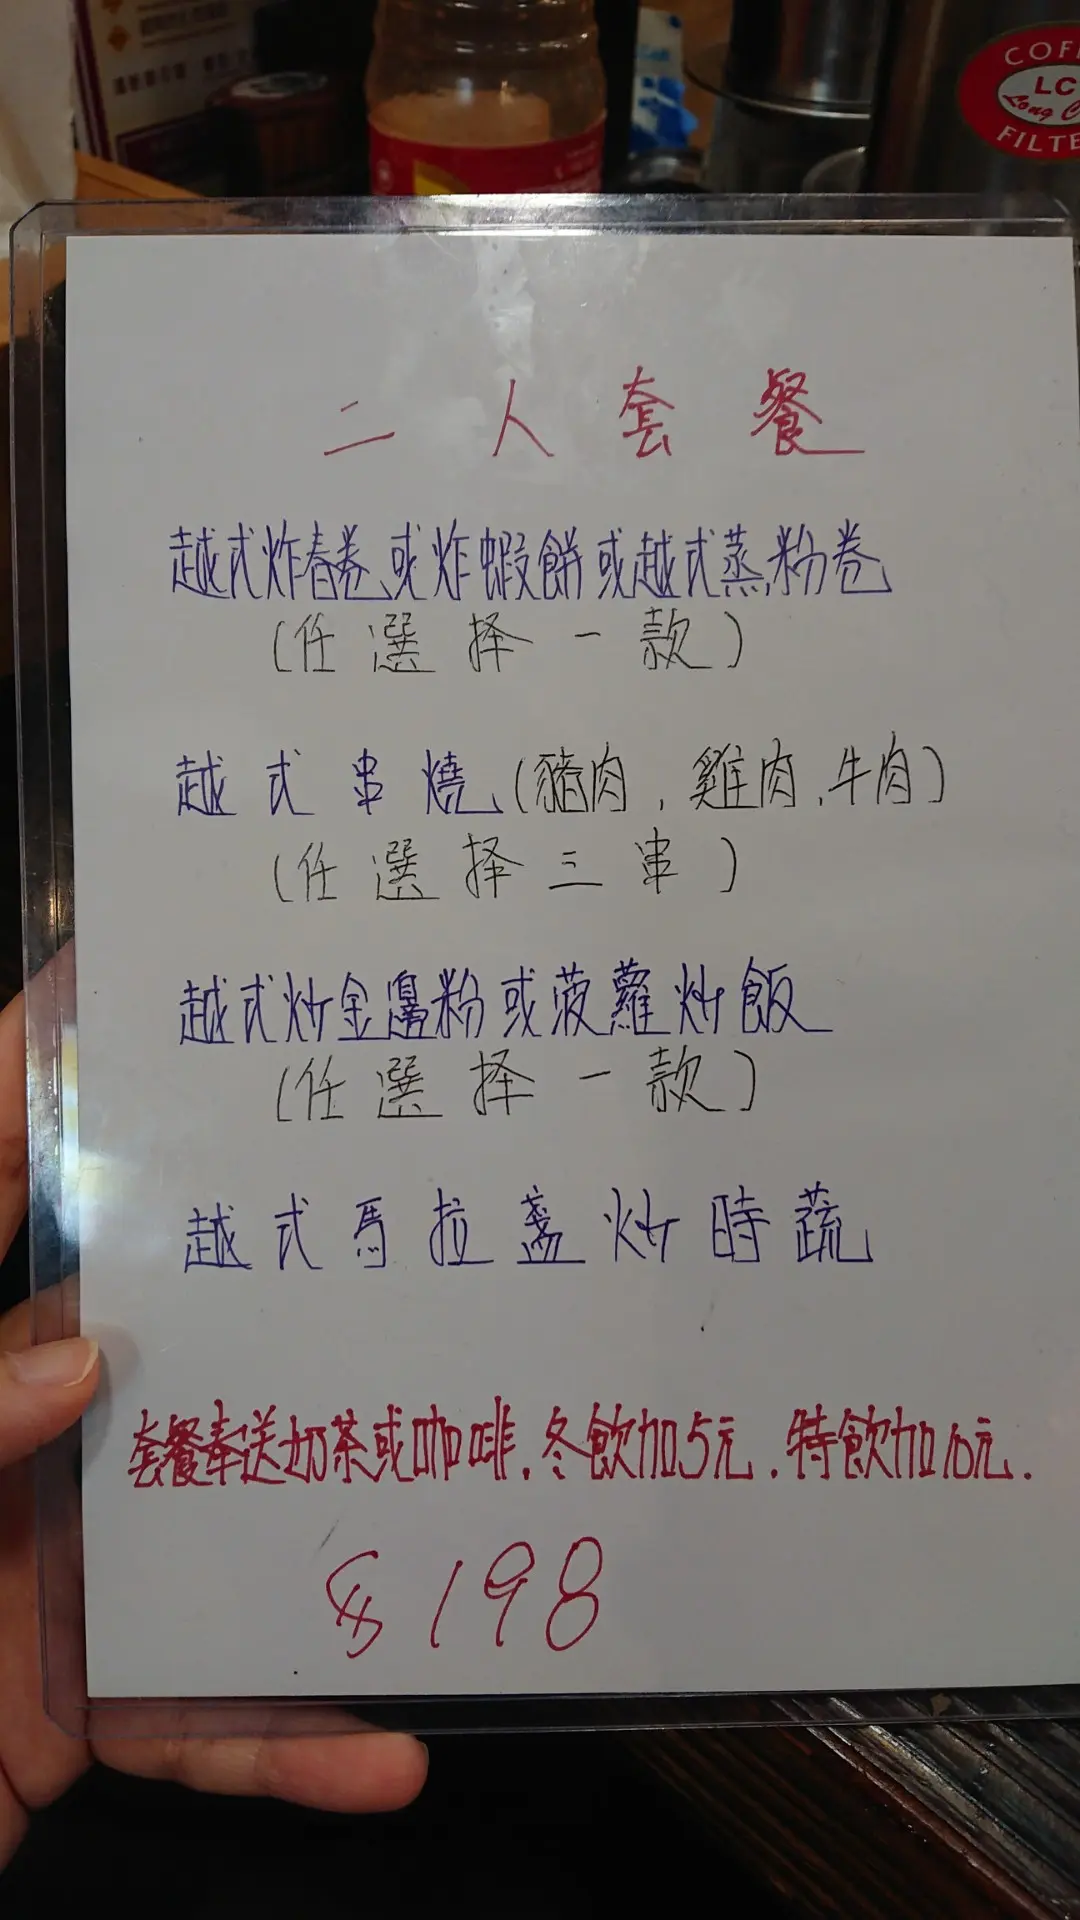 COF
LC
Long C
FILTE
二人套餐
越式炸春卷或炸蝦餅或越式蒸粉卷
(任選擇一款)
越式串燒(豬肉,雞肉,牛肉)
(任選擇三串)
越式炒金邊粉或菠蘿炒飯
(任選擇一款)
越式馬拉盞炒時蔬
套餐奉送奶茶或咖啡.冬飲加5元.特飲加10元.
$198